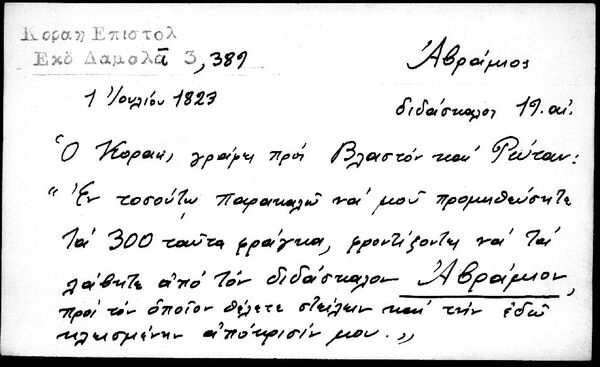 Κοραη Επιστολ
Εκδ Δαμαλᾶ 3, 389
Ἀβράμιος
1 Ἰουλίου 1823
διδάσκαλος 19. αἰ.
Ὁ Κοραῆς γράφει πρός Βλαστόν καί Ρώταν:
"Ἐν τοσούτῳ παρακαλῶ νά μοῦ προμηθεύσητε
τά 300 ταῦτα φράγκα, φροντίζοντες νά τά
λάβητε ἀπό τόν διδάσκαλον Ἀβράμιον,
πρός τόν ὁποῖον θέλετε στείλειν καί τήν ἐδῶ
κλεισμένην ἀπόκρισίν μου.„